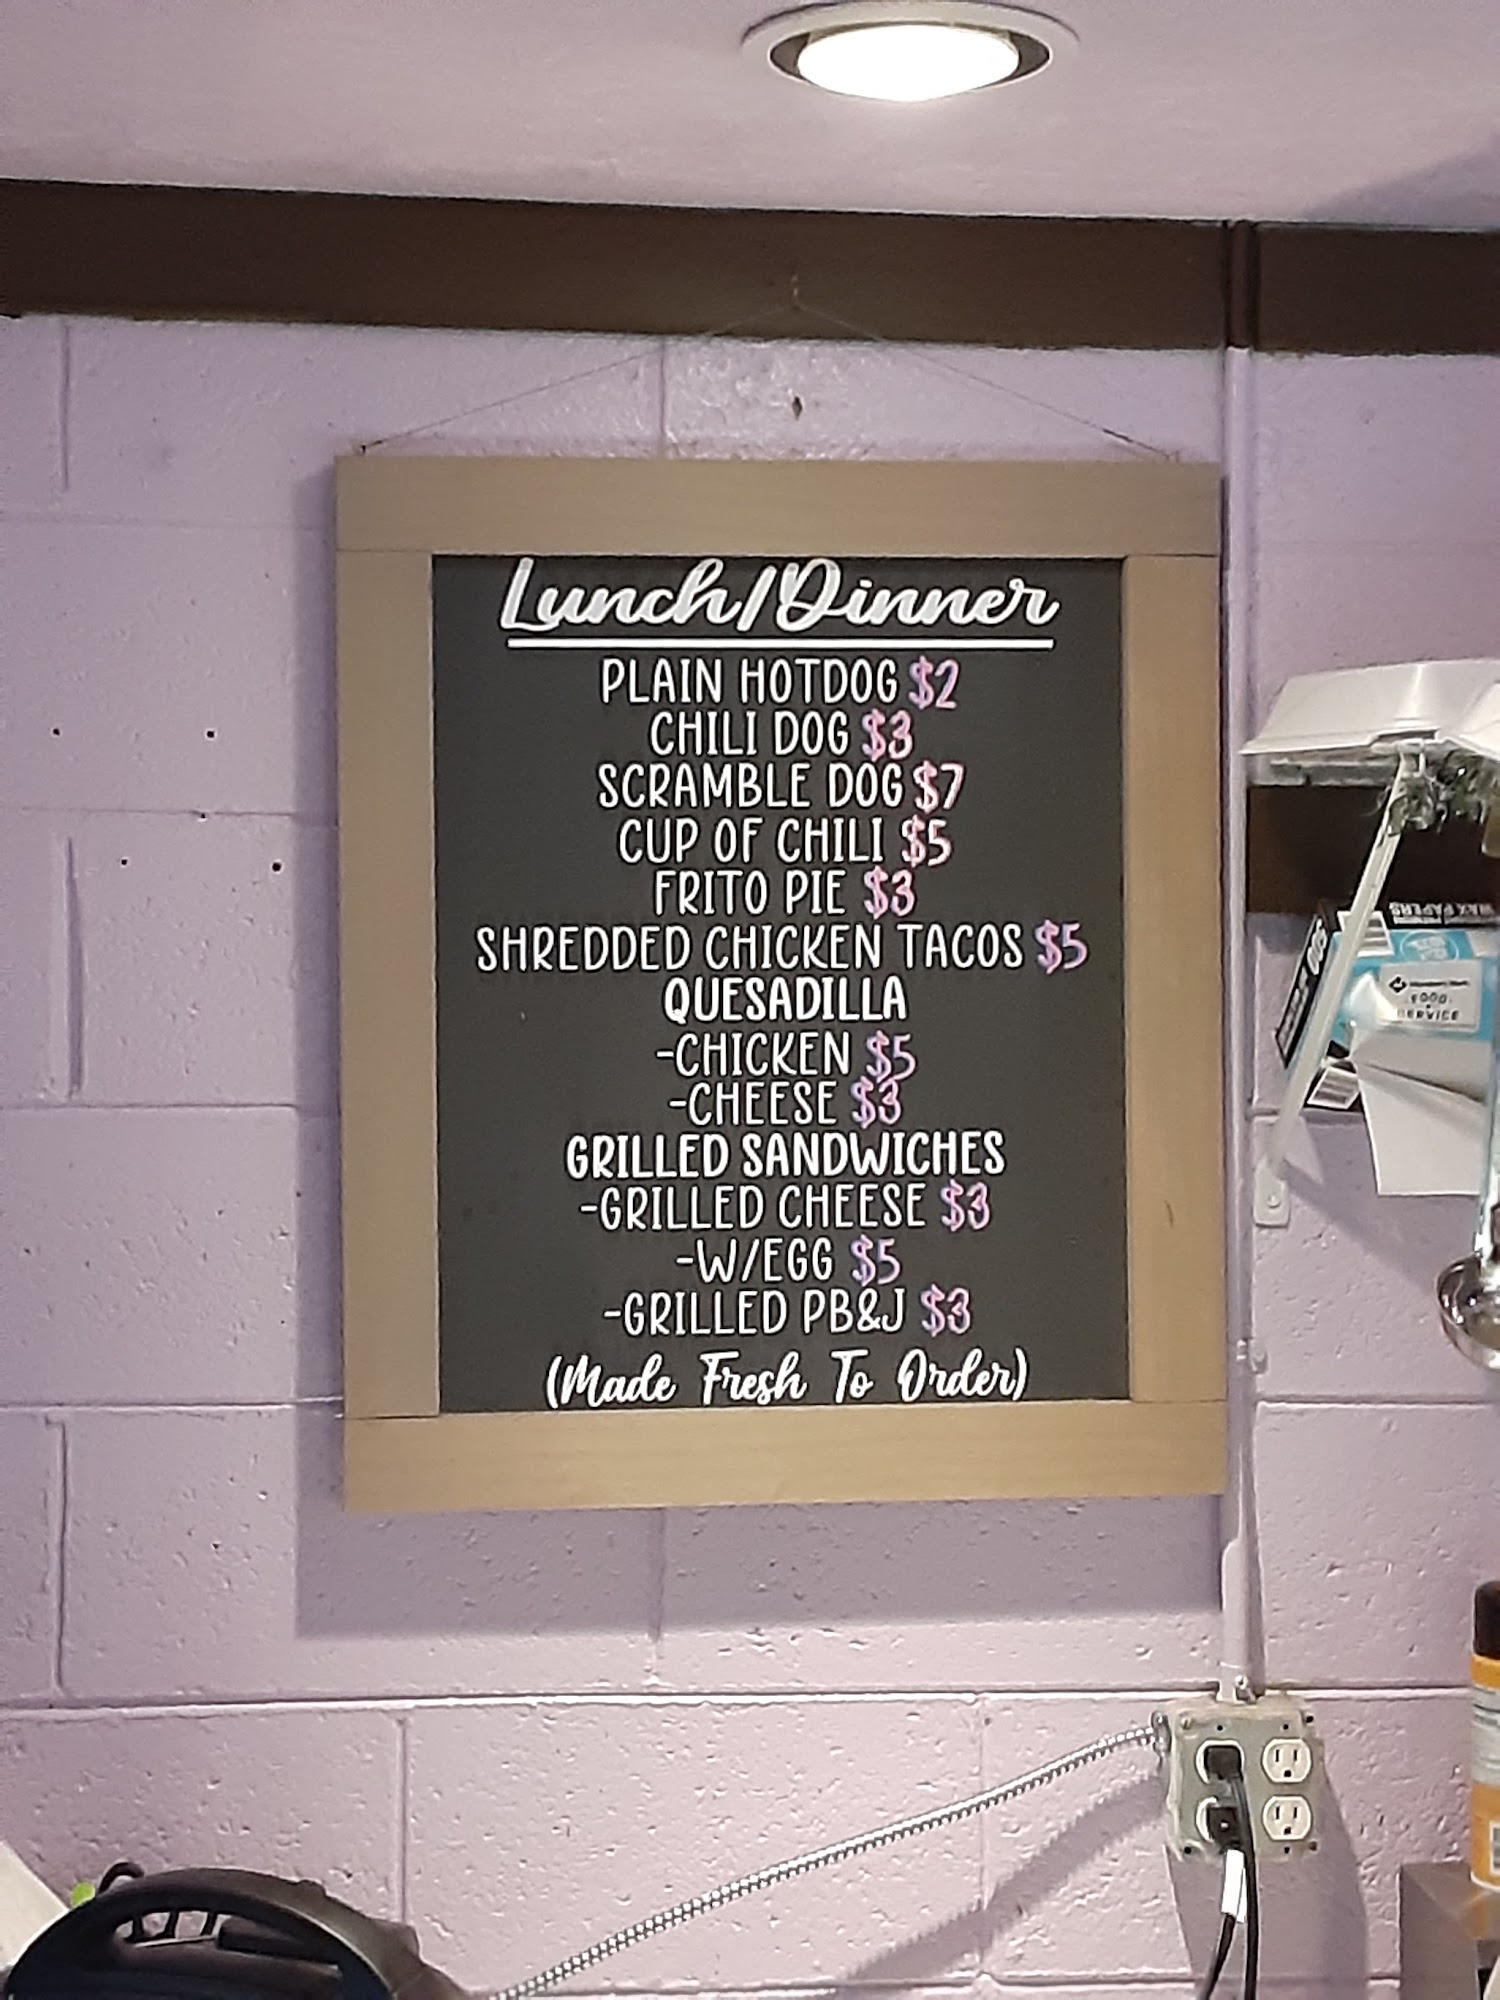 Lunch/Dinner
PLAIN HOTDOG $2
CHILI DOG $3
SCRAMBLE DOG $7
CUP OF CHILI $5
FRITO PIE $3
SHREDDED CHICKEN TACOS $5
QUESADILLA
-CHICKEN $5
-CHEESE $3
GRILLED SANDWICHES
-GRILLED CHEESE $3
-W/EGG $5
-GRILLED PB&J $3
(Made Fresh To Order)
WAX PAPERS
FOOD
SERVICE